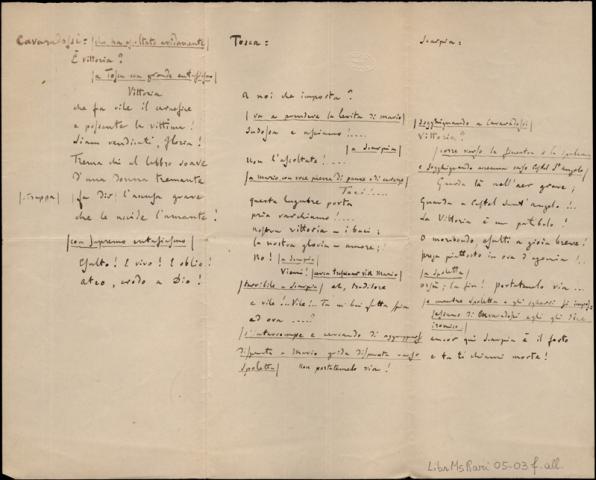 Cavaradossi: |che ha ascoltato avidamente|
È vittoria?
|a Tosca con grande entusiasmo|
Vittoria
che fa vile il carnefice
e possente la vittima!
Siam vendicati, Gloria!
Trema chi al labbro soave
D'una donna tremante
|fa dir| l'accusa grave
che le uccide l'amante!
|con supremo entusiasmo|
Esulto! E vivo! E oblio!
ateo, credo a Dio!
Tosca:
A noi che importa?
|va a prendere la levita di Mario|
Indossa e usciamo!....
|a Scarpia|
Non l'ascoltate!....
|a Mario, con voce piena di
Taci!....
questa lugubre porta
pria varchiamo!....
nostra vittoria - i baci;
la nostra gloria - amore;
No! |a Scarpia|
Vieni! |
|terribile a Scarpia| ah, traditore
e vile!.. Vile!.. Tu mi hai
ad ora ....?
|s'interrompe e cercando di aggrapparsi
disperata a Mario grida disperata verso
Spoletta| Non portatemelo via!
Scarpia:
|sogghignando a Cavaradossi|
Vittoria?
|corre verso la finestra e la spalanca
e sogghignando accenna verso Castel St Angelo|
Guarda là nell'aer grave,
Guarda a Castel Sant'angelo!..
La Vittoria è un patibolo!
O moribondo, esulti a gioia breve!
prega piuttosto in ora d'agonia!..
|a Spoletta|
orsù, la fin! portatemelo via ..
|e mentre Spoletta e gli sbirri si
di Cavaradossi egli gli dice
ironico|
ancor qui Scarpia è il forte
e ta ti chiami morte!
LibrMsRari 05-03 f. all.